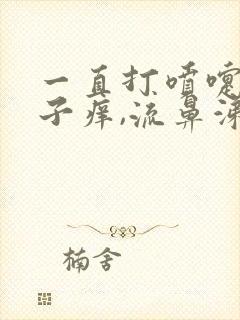 一直打喷嚏
子痒,流鼻涕
楠舍